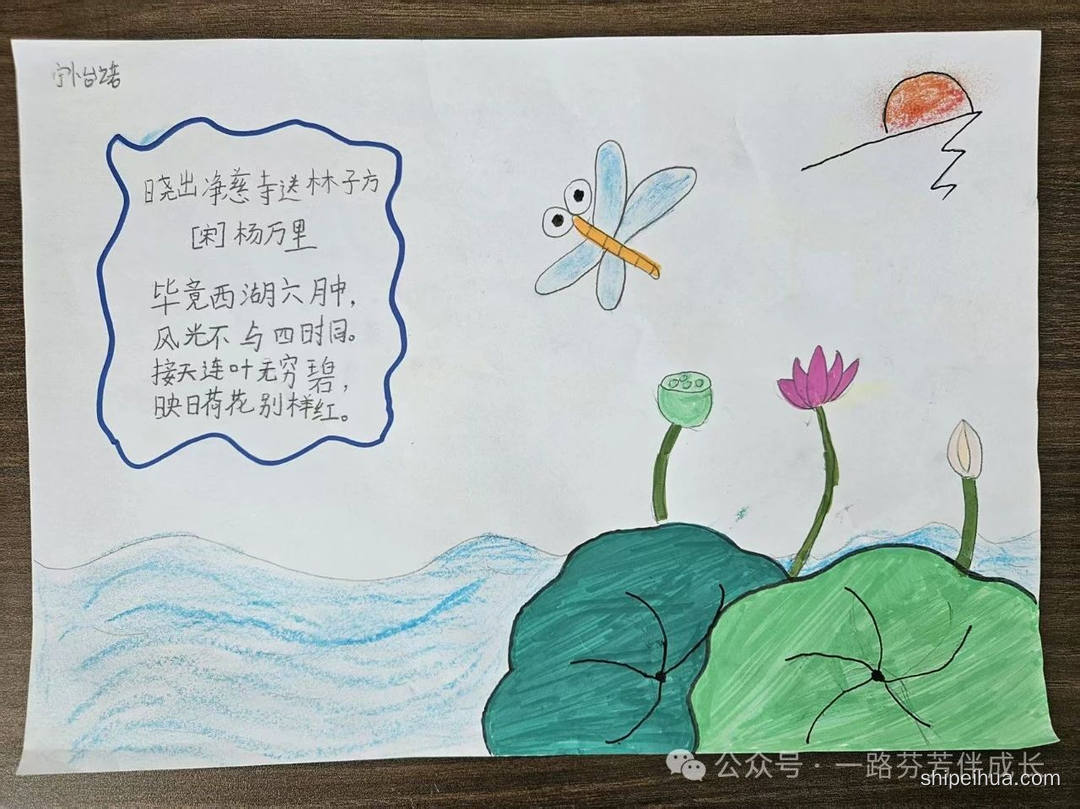 晓出净慈寺送林子方
[宋]杨万里
毕竟西湖六月中，
风光不与四时同。
接天连叶无穷碧，
映日荷花别样红。
公众号·一路芬芳伴成长
shipeihua.com